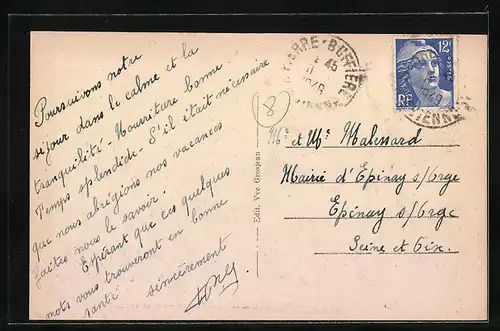 Poursuivons notre
séjour dans le calme et la
tranquilité - Nourriture bonne
Temps splendide. S'il était nécessaire
que nous abrégions nos vacances
faites nous le savoir.
Espérant que ces quelques
mots vous trouveront en bonne
santé
sincèrement
Edit. Vve Grosjean
8
PIERRE-BUFFIERE
45
12F
RF
Mr et Me Malessard
Mairie d'Epinay s/Orge
Epinay s/Orge
Seine et Oise.